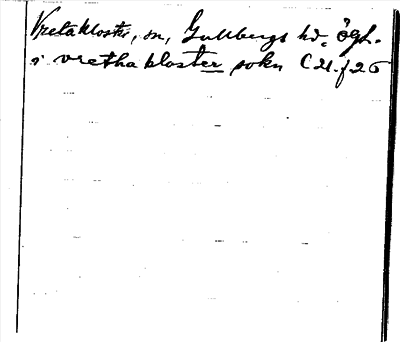 Vreta kloster, sn, Gullbergs hd. ögl.
i vretha kloster sokn C 21. f 26